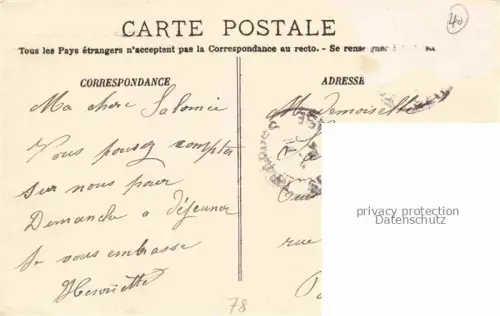 CARTE POSTALE
40
Tous les Pays étrangers n'acceptent pas la Correspondance au recto. - Se rense
CORRESPONDANCE
Ma chère Salomée
Vous pouvez compter
sur nous pour
Dimanche a déjeuner
Je vous embrasse
Henriette
ADRESSE
Mademoiselle
rue
privacy protection
Datenschutz
78